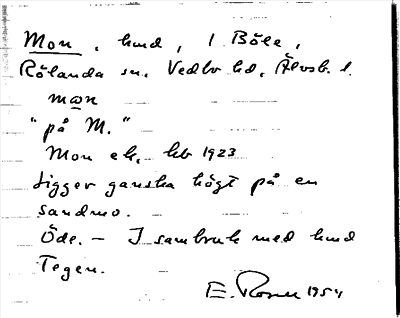 Mon, hmd, 1 Böle,
Rölanda sn. Vedbo hd, Älvsb. l.
mɷn
"på M."
Mon ek. kb 1923
Ligger ganska högt på en
sandmo.
Öde. – I sambruk med hmd
Tegen.
E. Rosell 1954